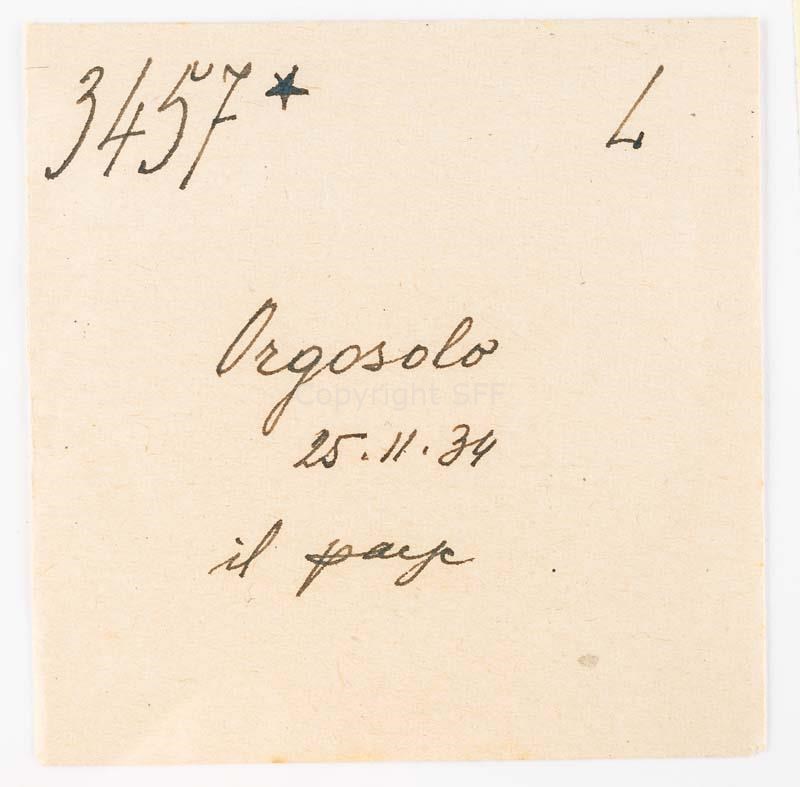 3457* L
Orgosolo
Copyright SFF
25.11.34
il paese